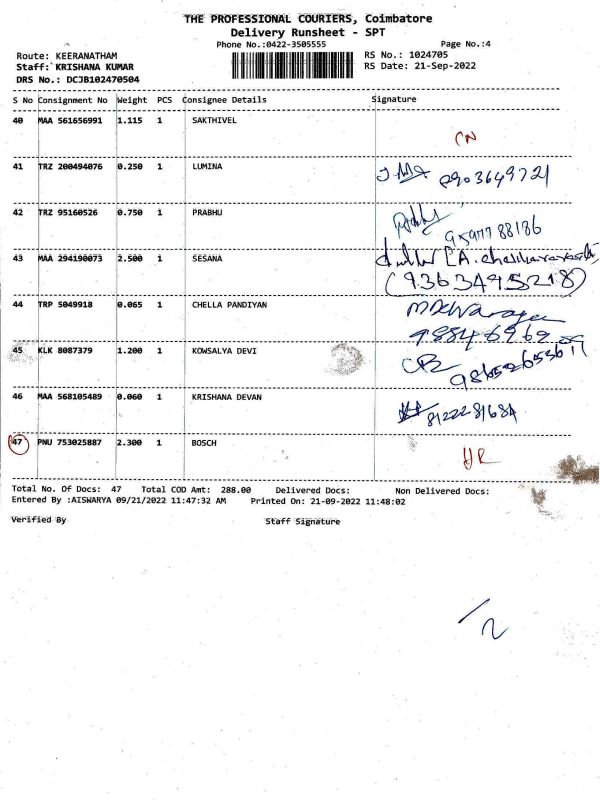 THE PROFESSIONAL COURIERS, Coimbatore
Delivery Runsheet - SPT
Phone No.:0422-3505555 Page No.:4
Route: KEERANATHAM RS No.: 1024705
Staff: KRISHANA KUMAR RS Date: 21-Sep-2022
DRS No.: DCJB102470504
S No Consignment No Weight PCS Consignee Details Signature
40 MAA 561656991 1.115 1 SAKTHIVEL
CN
41 TRZ 200494076 0.250 1 LUMINA
8903649721
42 TRZ 95160526 0.750 1 PRABHU
9597788186
43 MAA 294190073 2.500 1 SESANA
(9363495218)
44 TRP 5049918 0.065 1 CHELLA PANDIYAN
45 KLK 8087379 1.200 1 KOWSALYA DEVI
46 MAA 568105489 0.060 1 KRISHANA DEVAN
8122281684
47 PNU 753025887 2.300 1 BOSCH
Total No. Of Docs: 47 Total COD Amt: 288.00 Delivered Docs: Non Delivered Docs:
Entered By :AISWARYA 09/21/2022 11:47:32 AM Printed On: 21-09-2022 11:48:02
Verified By Staff Signature